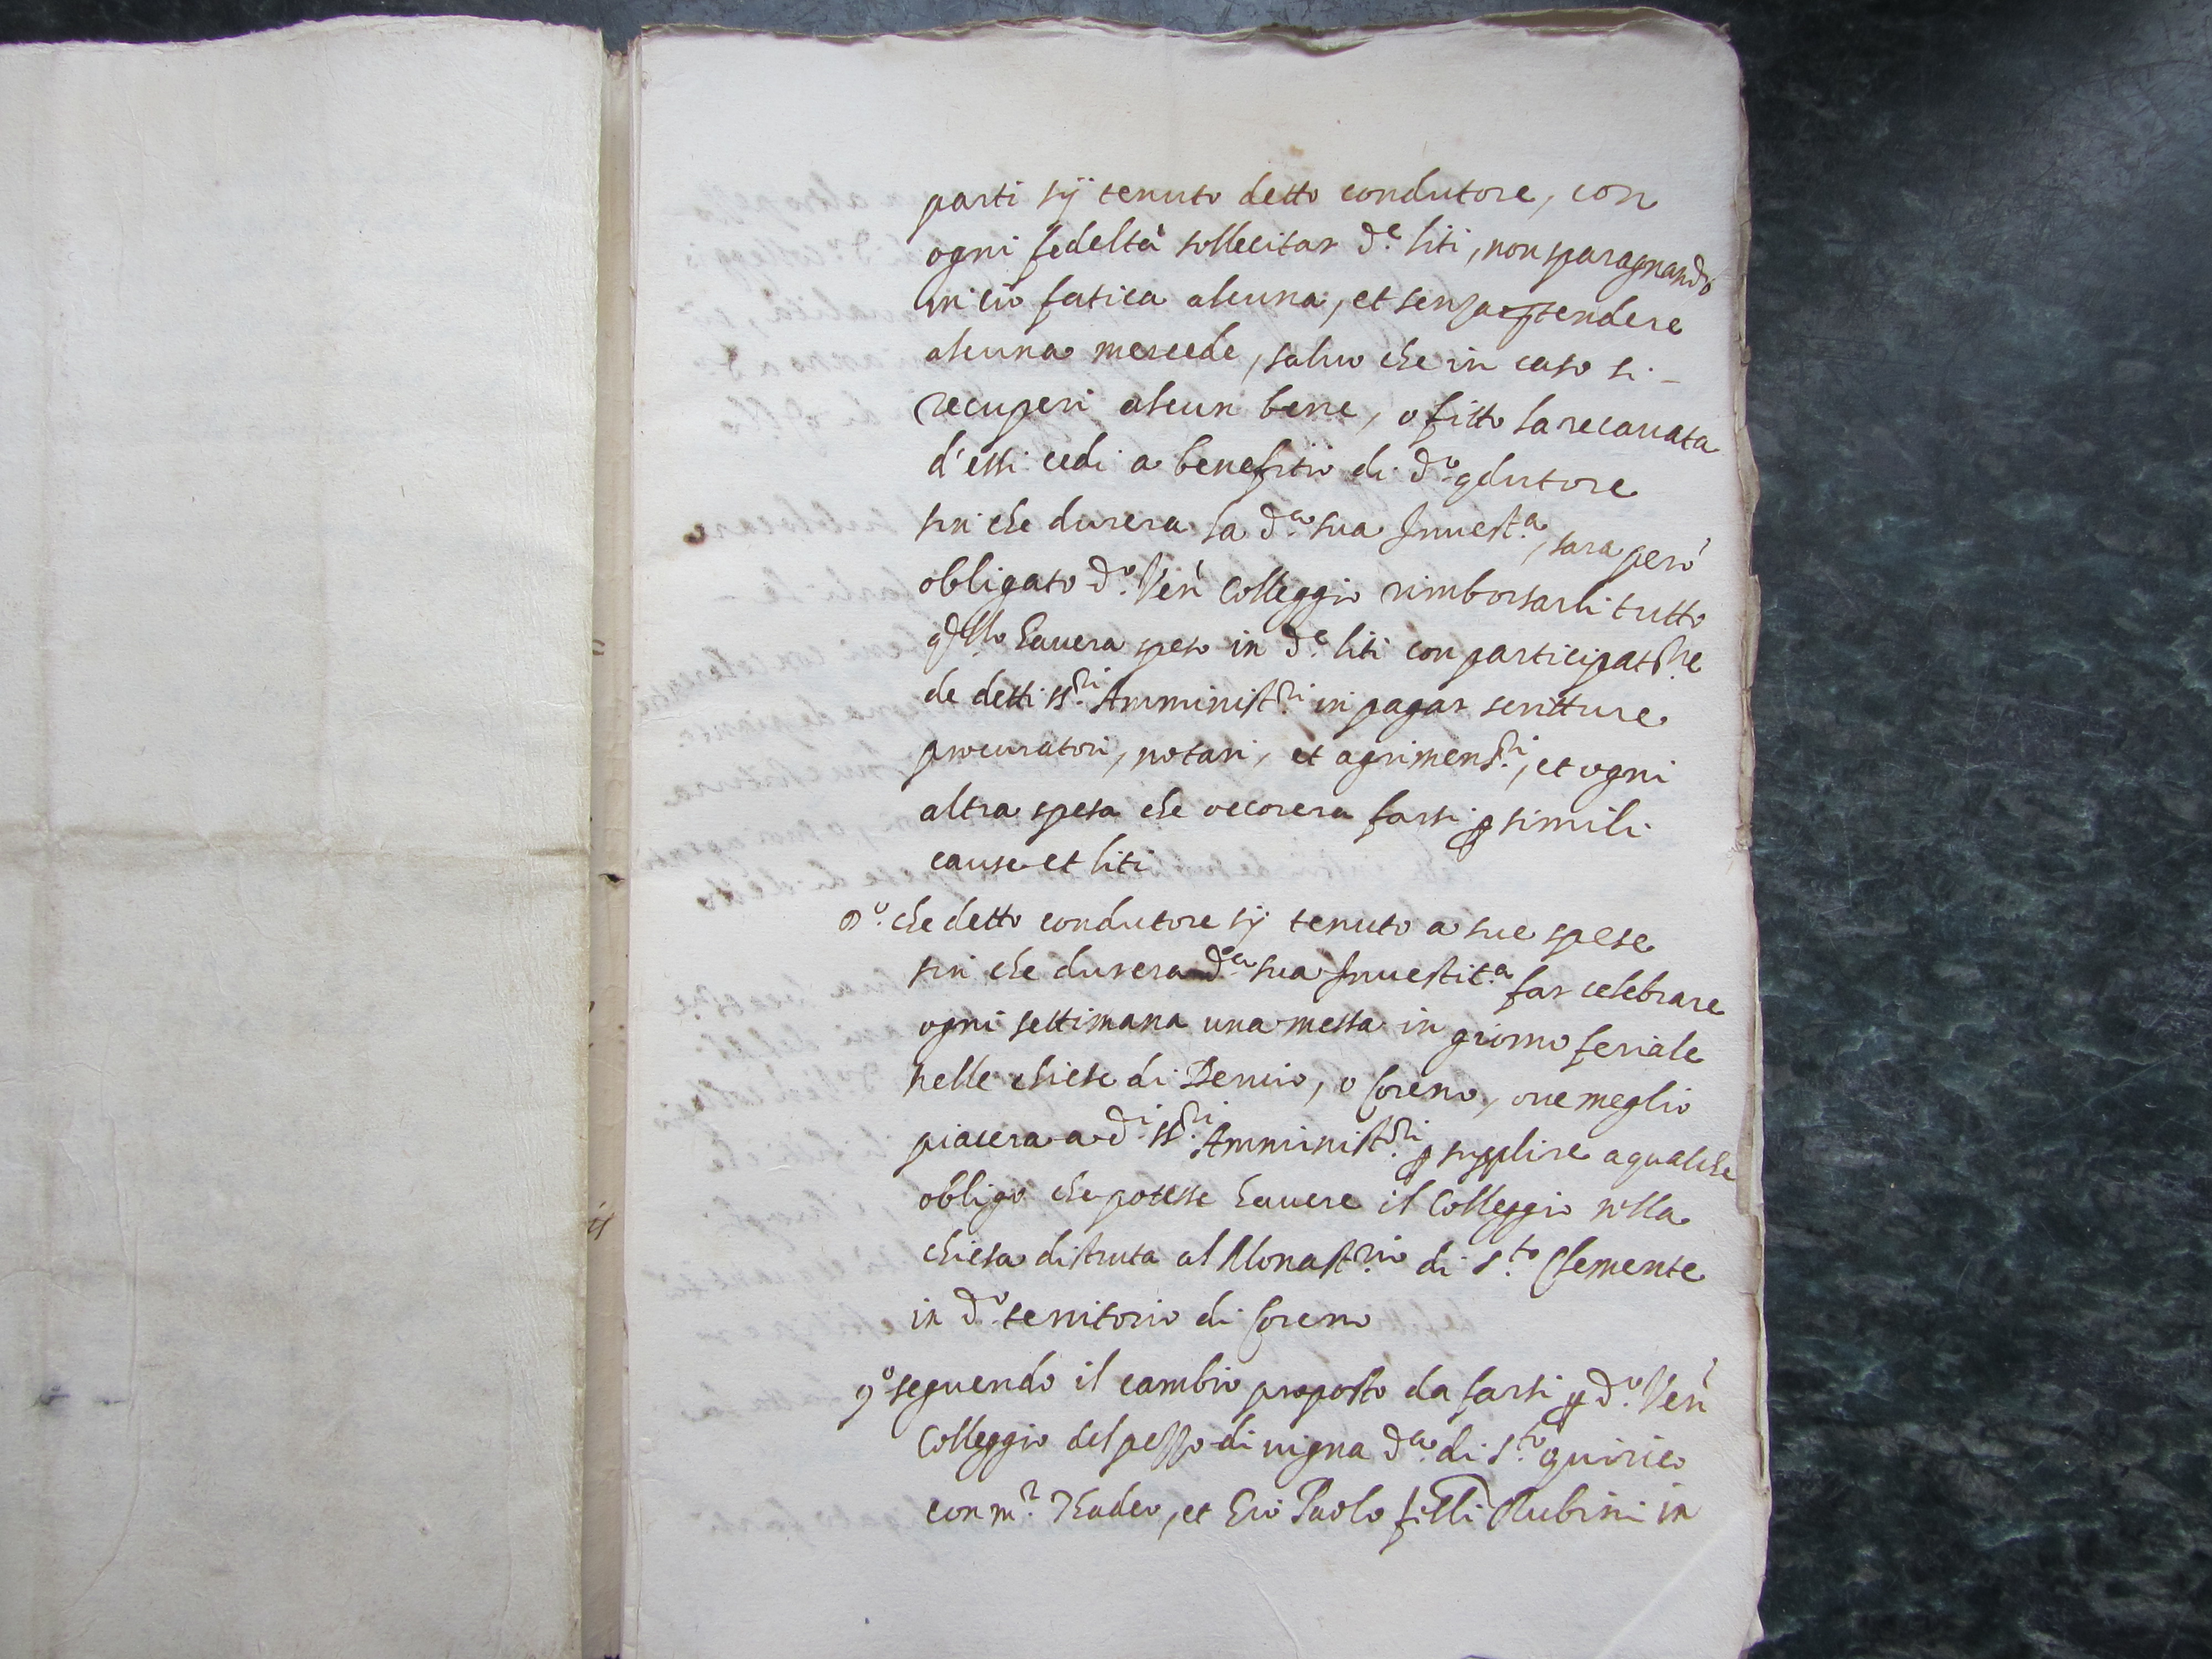 parti sij tenuto detto condutore, con
ogni fedeltà sollecitar d.e liti, non sparagnando
in ciò fatica alcuna, et senza ptendere
alcuna mercede, saluo che in caso si
recuperi alcun bene, o fitto la recauata
d'essi cedi a benefitio di d.o gdutore
sin che durera la d.a sua Inuest.a, sara però
obligato d.o Ven Colleggio rimborsarli tutto
qllo hauera speso in d.e liti con participat.ne
de detti ss.ri Amminist.ri in pagar scritture
procuratori, notari, et agrimens.ri, et ogni
altra spesa che occorera farsi p simili
cause et liti
8.o che detto condutore sij tenuto a sue spese
sin che durera d.a sua Inuestit.a far celebrare
ogni settimana una messa in giorno feriale
nelle chiese di Deruio, o Coreno, oue meglio
piacera a d.i ss.ri Amminist.ri p supplire a qualche
obligo che potesse hauere il Colleggio nlla
chiesa distruta al Monast.rio di S.to Clemente
in d.o territorio di Coreno
9.o seguendo il cambio proposto da farsi p d.o Ven
Colleggio del pezzo di uigna d.a di S.to Quirico
con m.r Thadeo, et Gio Paolo fflli Rubini in